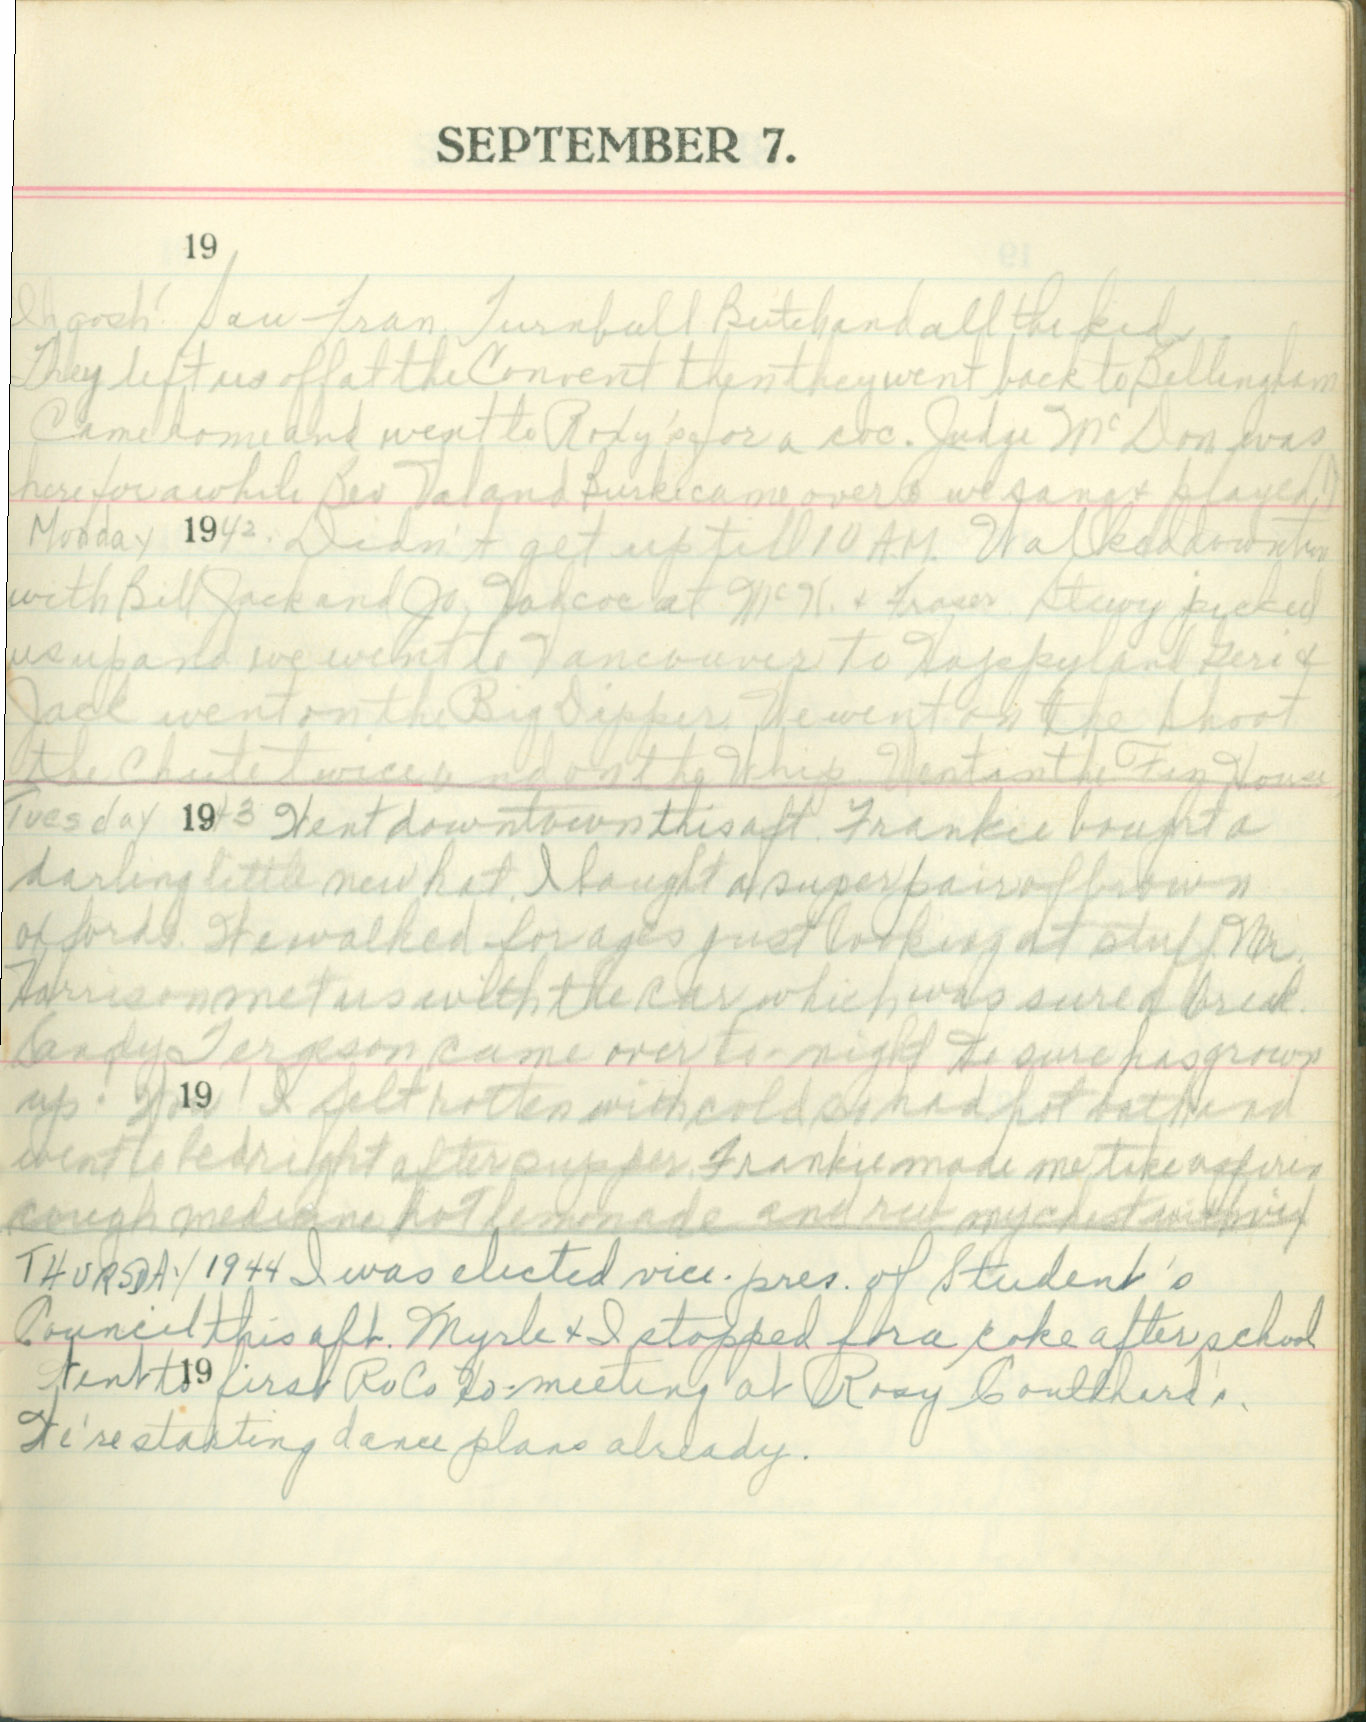 SEPTEMBER 7.
19
gosh! Saw Fran Turnbull Butch and all the kids
They left us off at the Convent then they went back to Bellingham
Came home and went to for a coc. Judge McDon was
here for a while Bev Tal and Burke came over & we sang & played
Monday 1942. Didn't get up till 10 A.M. Walked downtown
with Bill Jack and Jo, Had coc at & Fraser. Stewy picked
us up and we went to Vancouver to Happyland Geri &
Jack went on the Big Dipper. We went on the Shoot
the Chute twice and on the Whip. Went in the Fun House
Tuesday 1943 Went downtown this aft. Frankie bought a
darling little new hat. I bought a super pair of brown
oxfords. We walked for ages just looking at stuff. Mr.
Harrison met us with the car which was sure a break.
Sandy Ferguson came over to-night He sure has grown
up! Wow! 19 I felt rotten with cold so had hot bath and
went to bed right after supper. Frankie made me take aspirin
cough medicine hot lemonade and rub my chest with vix
THURSDAY 1944 I was elected vice-pres. of Student's
Council this aft. Myrle & I stopped for a coke after school
Went to 19 first RoCo Ho-meeting at Rosy Coulthard's.
We're starting dance plans already.